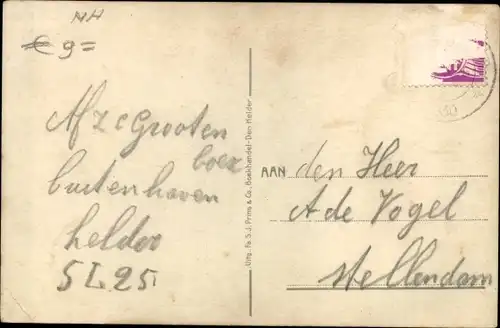 NH
€ 9=
Afz c Grooten
boer
buitenhaven
helder
S L 25
Uitg. Fa. S.J. Prins & Co, Boekhandel - Den Helder
AAN den Heer
A de Vogel
Stellendam